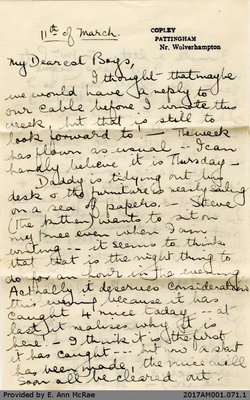 11th of March.
COPLEY
PATTINGHAM
Nr. Wolverhampton
My Dearest Boys,
I thought that maybe
we would have a reply to
our cable before I wrote this
week, but that is still to
look forward to. — The week
has flown as usual — I can
hardly believe it is Thursday —
Daddy is tidying out his
desk & the furniture is nearly sailing
on a sea of papers. — Steve
(the kitten) wants to sit on
my knee even when I am
writing — it seems to think
that that is the right thing to
do for an hour in the evening
Actually it deserves consideration
this evening because it has
caught 4 mice today — at
last it realises why it is
here! — I think it is the first
it has caught — but now a start
has been made, the mice will
soon all be cleared out —
Provided by E. Ann McRae
2017AM001.071.1